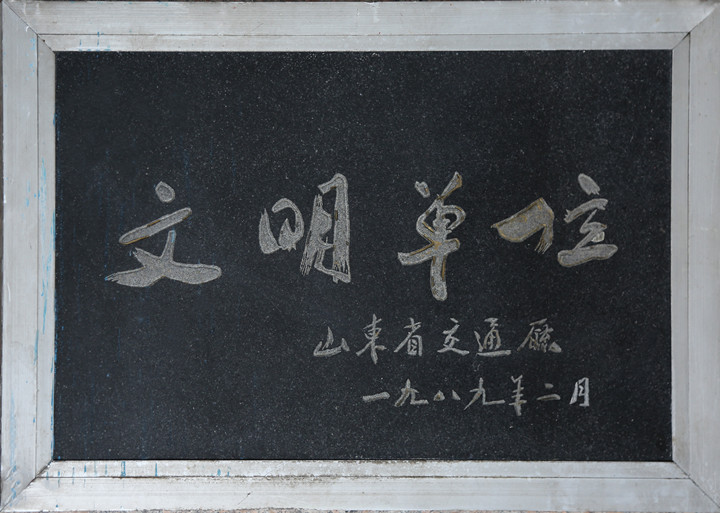 文明单位
山東省交通廳
一九八九年二月